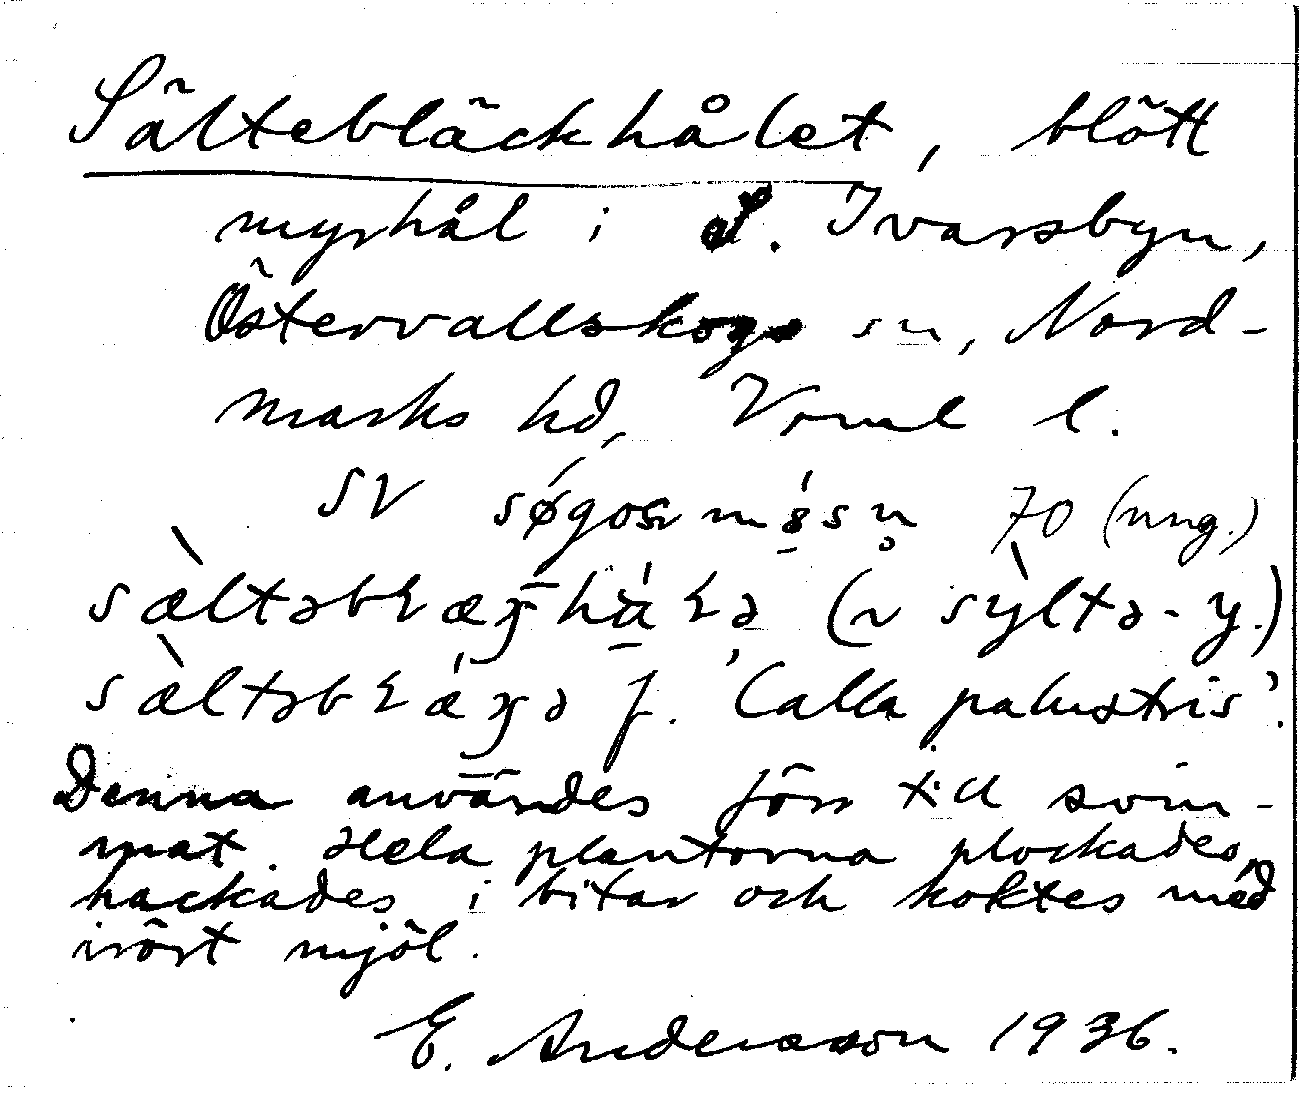 Sältebläckhålet, blött
myrhål i S. Ivarsbyn,
Östervallskogs sn, Nord-
marks hd, Vrml l.
SV 70 (ung.)
sæ̀ltəbɽæ (~ sỳltə- y.)
sæ̀ltəbɽæ f. 'Calla palustris'.
Denna användes förr till svin-
mat. Hela plantorna plockades,
hackades i bitar och koktes med
irört mjöl.
E. Andersson 1936.